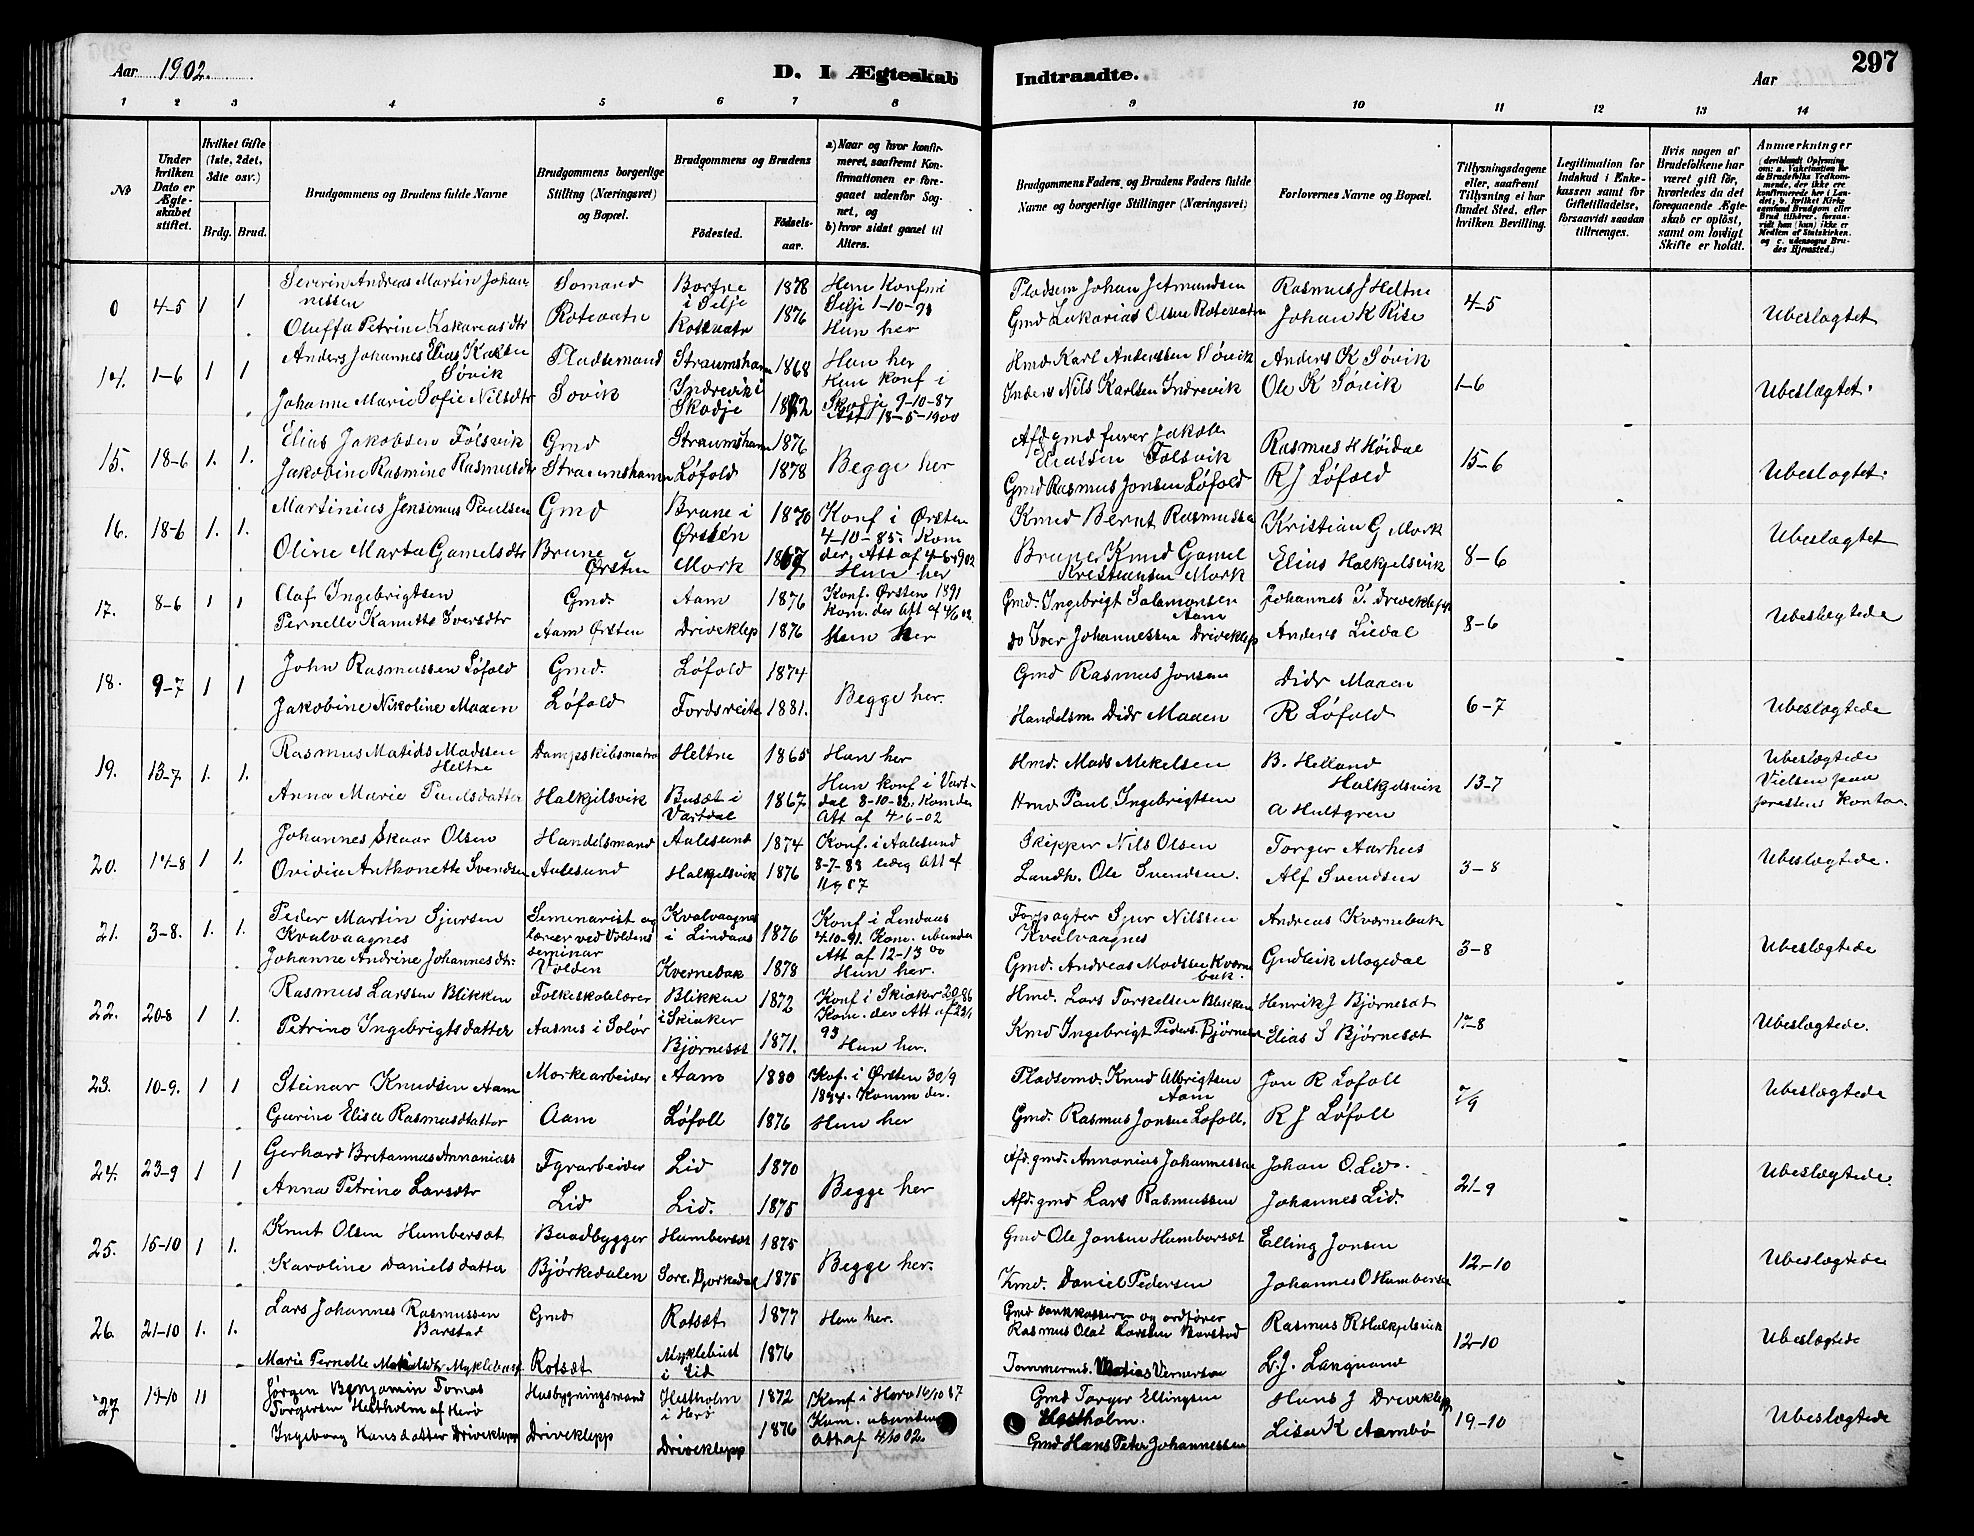 Aar 1902.
D. I. Ægteskab
Indtraadte.
Aar
297
1 2 3 4 5 6 7 8 9 10 11 12 13 14
No
Under hvilken Dato er Ægteskabet stiftet.
Hvilket Gifte (1ste, 2det, 3dte osv.)
Brdg. Brud.
Brudgommens og Brudens fulde Navne
Brudgommens borgerlige Stilling (Næringsvei) og Bopæl.
Brudgommens og Brudens
Fødested.
Fødselsaar.
a) Naar og hvor konfirmeret, saafremt Konfirmationen er foregaaet udenfor Sognet, og
b) hvor sidst gaaet til Alters.
Brudgommens Faders, og Brudens Faders fulde Navne og borgerlige Stillinger (Næringsvei)
Forlovernes Navne og Bopæl.
Tillysningsdagene eller, saafremt Tillysning ei har fundet Sted, efter hvilken Bevilling.
Legitimation for Indskud i Enkekassen samt for Giftetilladelse, forsaavidt saadan tiltrænges.
Hvis nogen af Brudefolkene har været gift før, hvorledes da det foregaaende Ægteskab er opløst, samt om lovligt Skifte er holdt.
Anmærkninger
0 4-5 1 1 Severin Andreas Martin Johannessen Somand Bortne i Selje 1878 Ham Konf i Selje 1-10-93 Pladsem Johan Jetmundsen Rasmus J Heltne 4-5 Ubeslægtet
Oluffa Petrine Zakariasdtr Rotevatn Rotevatn 1876 Hun her Gmd Zakarias Olsen Rotevatn Johan K Rise
14. 1-6 1 1 Anders Johannes Elias Karlsen Søvik Pladsemand Straumshamn 1868 Han her Hmd Karl Anderssen Søvik Anders K Søvik 1-6 Ubeslægtet.
Johanne Marie Sofie Nilsdtr Søvik Indrevik i Skodje 1872 Hun konf i Skodje 9-10-87 Att 18-5-1900 Inders Nils Karlsen Indrevik Ole K Søvik
15. 18-6 1. 1. Elias Jakobsen Følsvik Gmd Straumshamn 1876 Begge her Afd gmd furer Jakob Eliassen Følsvik Rasmus H Høidal 15-6 Ubeslægtet.
Jakobine Rasmine Rasmusdtr Straumshamn Løfold 1878 Gmd Rasmus Jonsen Løfold R J Løfold
16. 18-6 1. 1. Martinius Jensenius Paulsen Gmd Brune i Ørsten 1870 Konf i Ørsten 4-10-85. Kom der, Att af 4-6-1902 Kmd Bernt Rasmussen Brune Kristian G Mork 8-6 Ubeslægtet
Oline Marta Gamelsdtr Brune Ørsten Mork 1867 Hun her Kmd Gamel Kristiansen Mork Elias Halkjelsvik
17. 8-6 1 1 Olaf Ingebrigtsen Gmd. Aam 1876 Konf. Ørsten 1891 kom. der Att af 4/6 02. Gmd. Ingebrigt Salamonsen Aam Johannes P. Driveklep 8-6 Ubeslægtede
Pernelle Kanutte Iversdtr Aam Ørsten Driveklep 1876 Hun her do Iver Johannessen Driveklep Anders Liedal
18. 9-7 1 1 John Rasmussen Løfold Gmd. Løfold 1874 Begge her. Gmd Rasmus Jonsen Didr Maaen 6-7 Ubeslægtede
Jakobine Nikoline Maaen Løfold Fordsreite 1881. Handelsm. Didr Maaen R Løfold
19. 13-7 1. 1. Rasmus Matids Madssen Heltne Dampskibsmatro Heltne 1865 Han her Hmd. Mads Mekelsen B. Helland Halkjelsvik 13-7 Ubeslægtede Vielsen paa prestens Kontor.
Anna Marie Paulsdatter Halkjilsvik Busæt i Vartdal 1867 Hun konf i Vartdal 8-10-82. Kom der Att af 4 6-02 Hmd Paul Ingebrigtsen A Hultgren
20. 14-8 1 1. Johannes Skaar Olsen Handelsmand Aalesund 1874 Konf. i Aalesund 8-7-88 ledig Att af Skipper Nils Olsen Torger Aarhus 3-8 Ubeslægtede.
Ovidia Anthonette Svendsen Aalesund Halkjelsvik 1876 Landh. Ole Svendsen. Alf Svendsen
21. 3-8. 1. 1. Peder Martin Sjursen Kvalvaagnes Seminarist og lærer ved Voldens seminar Volden Kvalvaagnes i Lindaas 1876 Konf i Lindaas 4.10-91. Kom. ubunden Att af 12-13 00 Forpagter Sjur Nilssen Kvalvaagnes Andreas Kvernebak 3-8 Ubeslægtede
Johanne Andrine Johannesdtr: Kvernebak 1878 Hun her. Gmd. Andreas Madssen Kvernebak. Gudleik Mogedal
22. 20-8 1 1. Rasmus Larssen Blikken Folkeskolelærer Blikken i Skiaker 1872 Konf i Skiaker 20-86 Kom. der Att af 93 Hmd. Lars Torkelsen Blikken Henrik J Bjørneset 17-8 Ubeslægtede.
Petrine Ingebrigtsdatter Aasnes i Solør Bjørnesæt 1871. Hun her. Kmd Ingebrigt Peders. Bjørneset Elias S Bjørnesæt
23. 10-9. 1 1 Steinar Knudsen Aam Morkearbeider Aam 1880 Kof. i Ørsten 30/9 1894. Komm der. Pladsemd. Knud Albrigtsen Aam Jon R Lofoll 7/9 Ubeslægtede
Gurine Elisa Rasmusdatter Aam Løfoll 1876 Hun her Gmd. Rasmus Jonsen Lofoll. R J Løfoll
24. 23-9 1 1 Gerhard Britannus Annaniass Fyrarbeider Lid 1870 Begge her Afd. gmd. Annanias Johannessen Johan O. Lid. 21-9 Ubeslægtede.
Anna Petrine Larsdtr Lid Lid. 1875 Afd. gmd Lars Rasmussen Johannes Lid.
25. 15-10 1 1. Knut Olsen Humberset Baadbygger Humberset 1875 Begge her. Gmd Ole Jonsen Humborsæt Elling Jonsen 12-10 Ubeslægtede
Karoline Danielsdatter Bjørkedalen Søre. Bjorkedal 1875 Kmd. Daniel Pedersen Johannes O Humberset
26. 21-10 1. 1. Lars Johannes Rasmussen Barstad Gmd Rotsæt 1877 Han her. Gmd bankkasserer og ordfører Rasmus Olai Larssen Barstad Rasmus R Halkjelsvik 12-10 Ubeslægtede
Marie Pernelle Myklebust Rotsæt Myklebust i Eid 1876 Tommerms. Matias Vernersen L. J. Langsand
27 19-10 11 Jørgen Benjamin Tomas Torgersen Hestholm af Herø Husbygningsmand Hestholm i Herø 1872 Konf i Herø 16/10 87 Kom. ubunden Att af 4/10 02. Gmd Torger Ellingsen Hestholm. Hans J Driveklepp 19-10 Ubeslægtede
Ingeborg Hansdatter Driveklepp Driveklepp Driveklepp 1876 Gmd Hans Peter Johannessen Lisa K Aambø